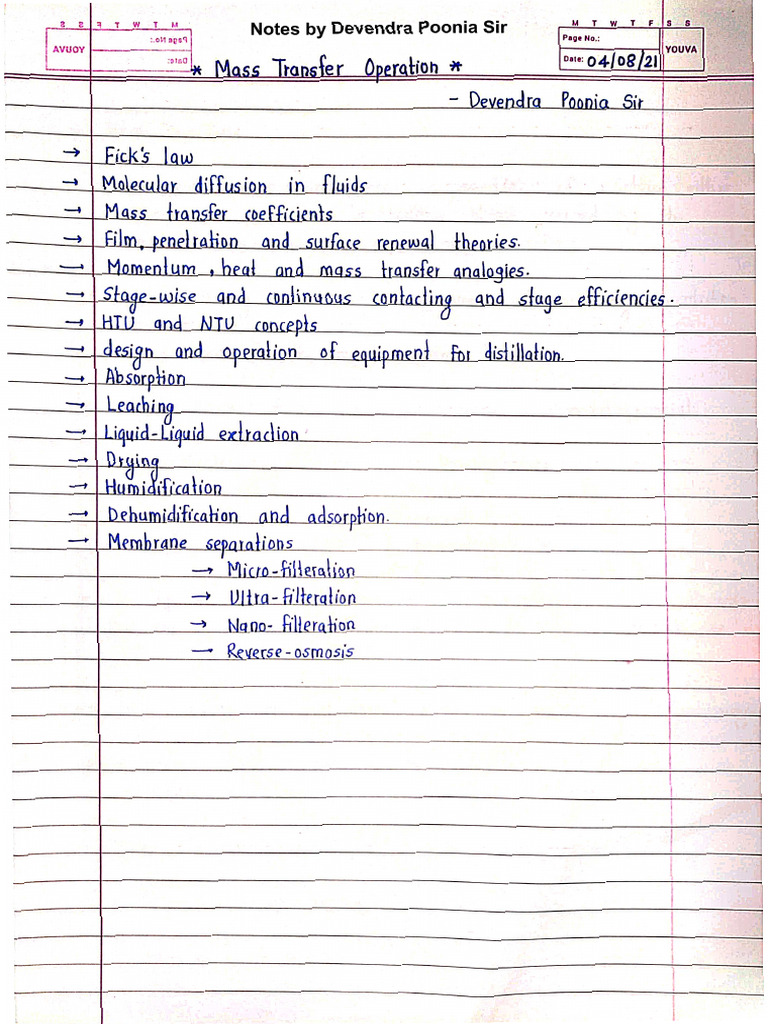 Notes by Devendra Poonia Sir
M T W T F S S
Page No.:
Date: 04/08/21
YOUVA
* Mass Transfer Operation *
- Devendra Poonia Sir
→ Fick's law
→ Molecular diffusion in fluids
→ Mass transfer coefficients
→ Film, penetration and surface renewal theories.
→ Momentum, heat and mass transfer analogies.
→ Stage-wise and continuous contacting and stage efficiencies.
→ HTU and NTU concepts
→ design and operation of equipment for distillation.
→ Absorption
→ Leaching
→ Liquid-Liquid extraction
→ Drying
→ Humidification
→ Dehumidification and adsorption.
→ Membrane separations
→ Micro-filteration
→ Ultra-filteration
→ Nano-filteration
→ Reverse-osmosis